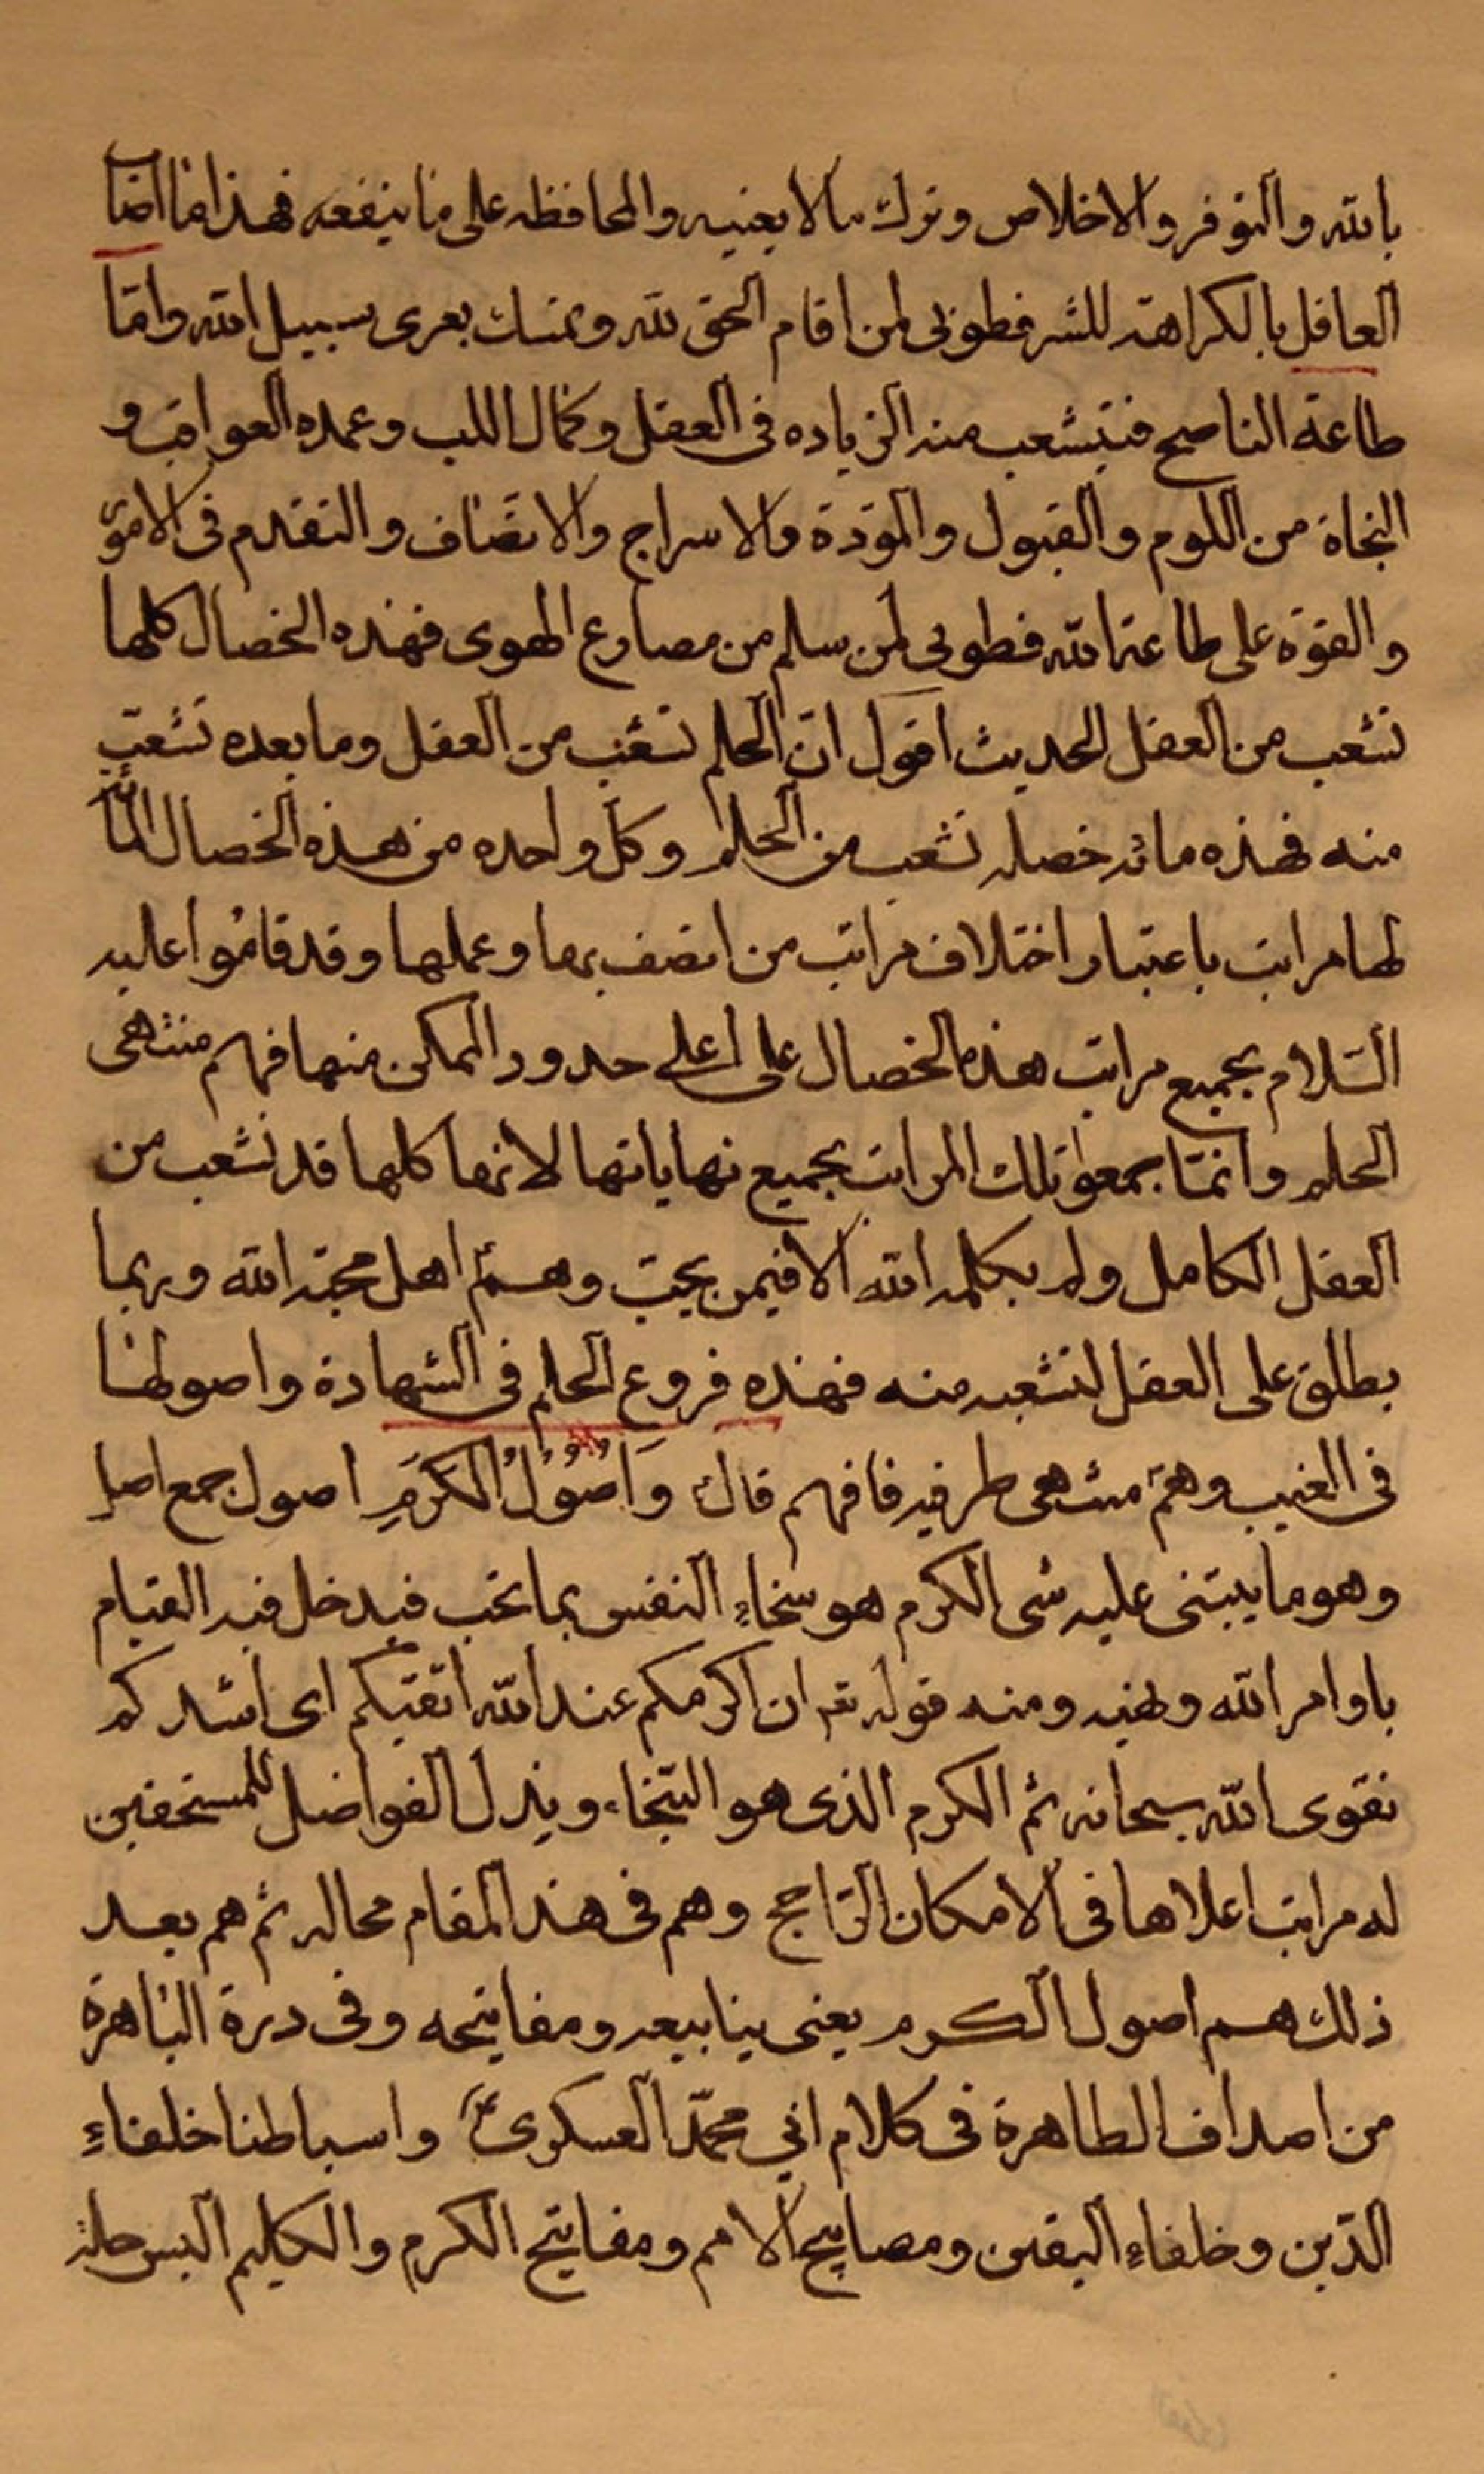 بالله والتوفر والاخلاص وترك مالا يعنيه والمحافظه على ما ينفعه فهذا ما اصاب
العاقل بالكراهة للشر فطوبى لمن اقام الحق لله وتمسك بعرى سبيل الله واما
طاعة الناصح فيتشعب منه الزياده فى العقل وكمال اللب وعمده العواقب و
النجاة من اللوم والقبول والمودة والاسراج والانصاف والتقدم فى الامور
والقوة على طاعة الله فطوبى لمن سلم من مصارع الهوى فهذه الخصال كلها
تشعب من العقل الحديث اقول ان الحلم تشعب من العقل وما بعده تشعب
منه فهذه مائة خصلة تشعب من الحلم وكل واحده من هذه الخصال المأة
لها مراتب باعتبار اختلاف مراتب من اتصف بها وعملها وقد قاموا عليهم
السلام بجميع مراتب هذه الخصال على اعلى حدود الممكن منها فهم منتهى
الحلم وانما جمعوا تلك المراتب بجميع نهاياتها لانها كلها قد تشعب من
العقل الكامل ولم يكمله الله الا فيمن يحب وهم اهل محبة الله وربما
يطلق على العقل لتشعبه منه فهذه فروع الحلم فى الشهادة واصولها
فى الغيب وهم منتهى طرفيه فافهم قال وَاُصُولُ الْكَرَمِ اصول جمع اصل
وهو ما يبتنى عليه شى الكرم هو سخاء النفس بما تحب فيدخل فيه القيام
باوامر الله ونهيه ومنه قوله تع ان اكرمكم عند الله اتقيكم اى اشدكم
تقوى الله سبحانه ثم الكرم الذى هو السخاء وبذل الفواضل للمستحقين
له مراتب اعلاها فى الامكان الراجح وهم فى هذا المقام محاله ثم هم بعد
ذلك هم اصول الكرم يعنى ينابيعه ومفاتيحه وفى درة الباهرة
من اصداف الطاهرة فى كلام ابي محمد العسكرى ع واسباطنا خلفاء
الدين وخلفاء اليقين ومصابيح الامم ومفاتيح الكرم والكليم البس حلة